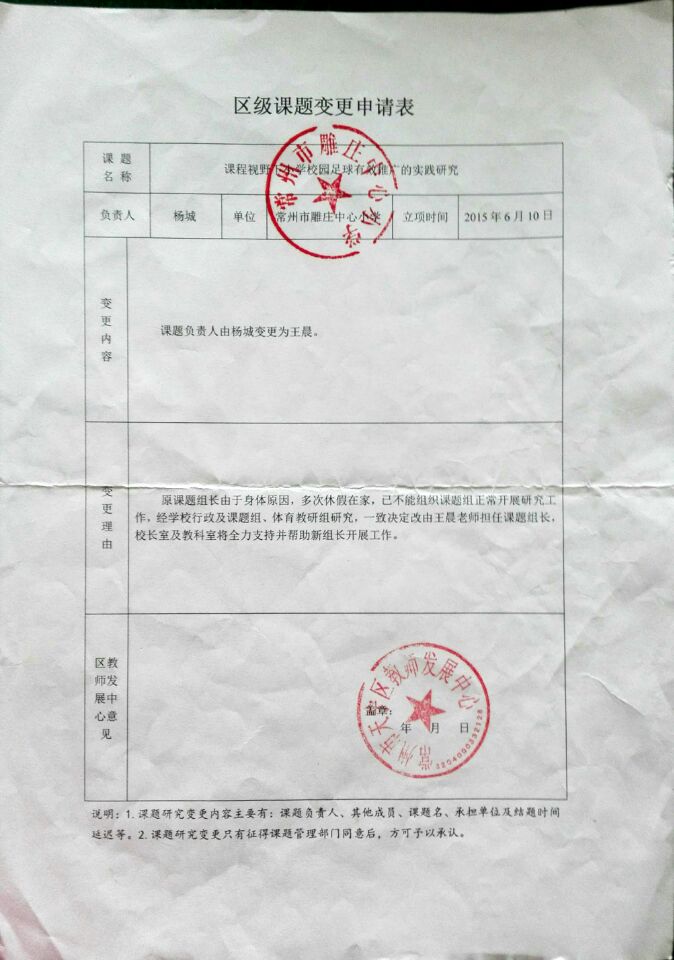 区级课题变更申请表
课题
名称
课程视野下小学校园足球有效推广的实践研究
负责人 杨城 单位 常州市雕庄中心小学 立项时间 2015年6月10日
变更内容
课题负责人由杨城变更为王晨。
变更理由
原课题组长由于身体原因，多次休假在家，已不能组织课题组正常开展研究工
作，经学校行政及课题组、体育教研组研究，一致决定改由王晨老师担任课题组长，
校长室及教科室将全力支持并帮助新组长开展工作。
区教师发展中心意见
盖章：
年 月 日
常州市雕庄中心小学
常州市天宁区教师发展中心
说明：1.课题研究变更内容主要有：课题负责人、其他成员、课题名、承担单位及结题时间
延迟等。2.课题研究变更只有征得课题管理部门同意后，方可予以承认。